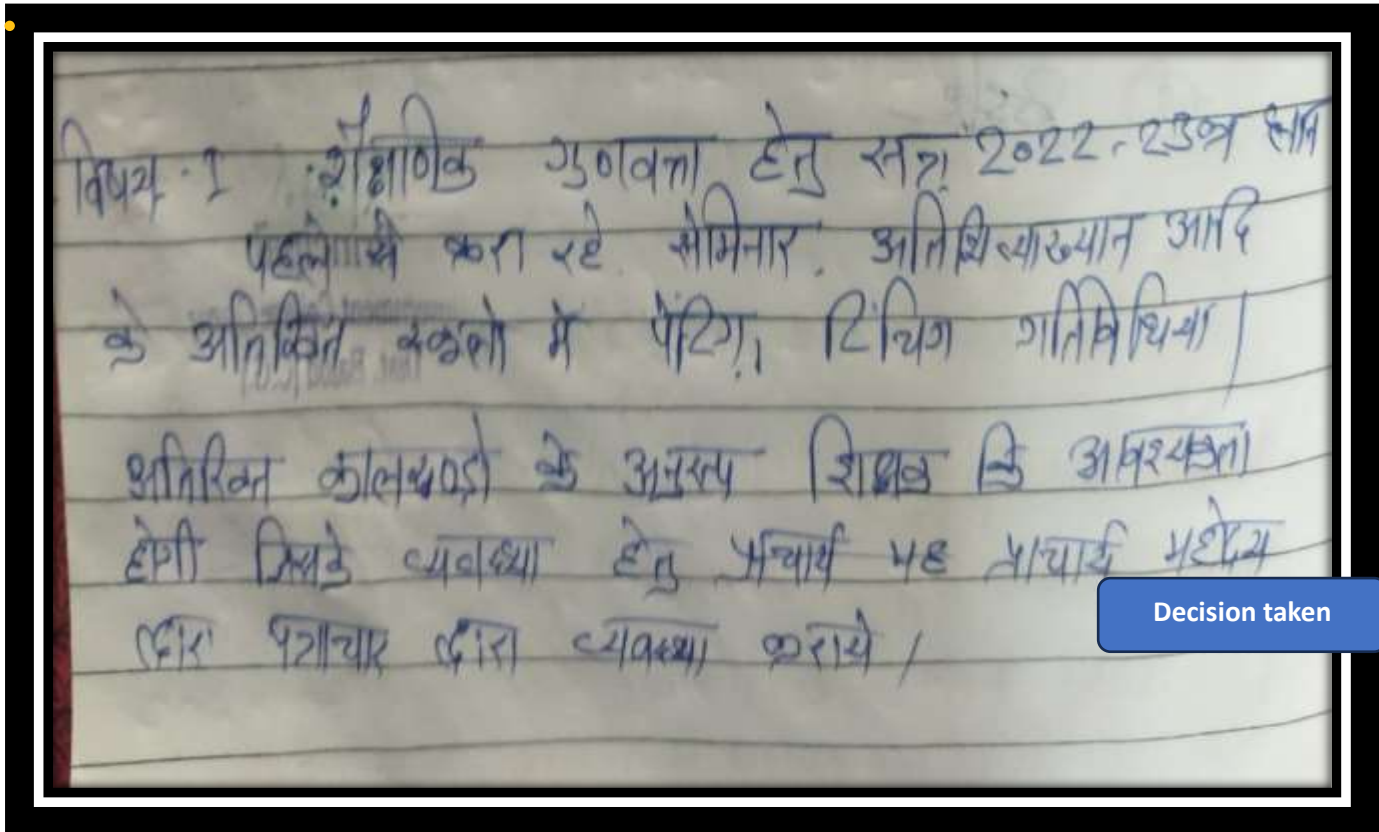 विषय-1 शैक्षणिक गुणवत्ता हेतु सत्र 2022-23
पहले से करा रहे सेमिनार, अतिथि व्याख्यान आदि
के अतिरिक्त में पेंटिग, टिंचिग गतिविधिया |
अतिरिक्त कालखण्डो के अनुरूप शिक्षक कि आवश्यकता
होगी जिसके व्यवस्था हेतु प्राचार्य महोदय
द्वारा पत्राचार द्वारा व्यवस्था कराये /
Decision taken